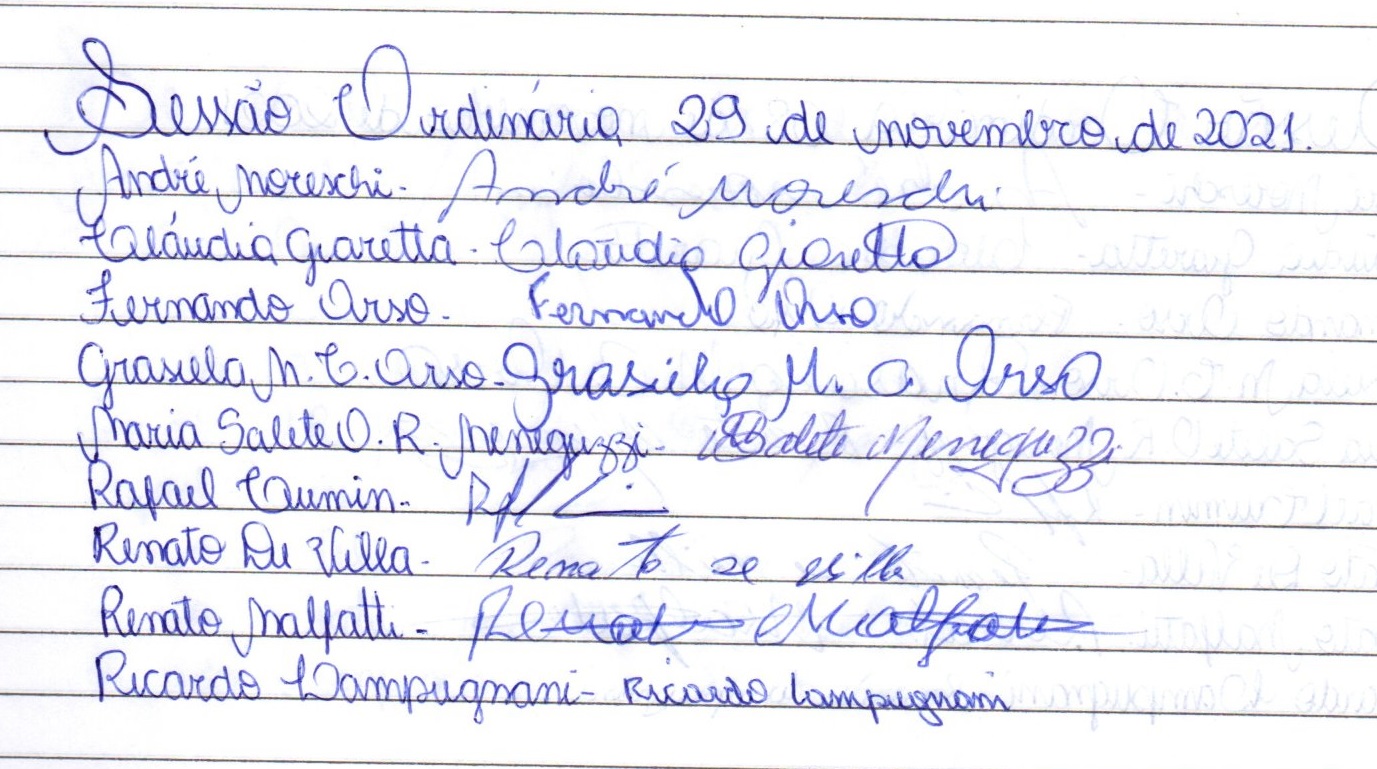 Sessão Ordinária, 29 de novembro de 2021.
André Moreschi - André Moreschi
Cláudia Giaretta - Cláudia Giaretta
Fernando Orso. Fernando Orso
Grasiela M. C. Orso - Grasiela M. C. Orso
Maria Salete O. R. Meneguzzi - Salete Meneguzzi
Rafael -
Renato De Villa - Renato de Villa
Renato Malfatti - Renato Malfatti
Ricardo Lampugnani - Ricardo Lampugnani